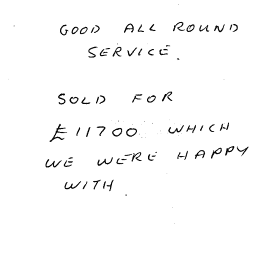 GOOD ALL ROUND
SERVICE.
SOLD FOR
£11700 WHICH
WE WERE HAPPY
WITH.